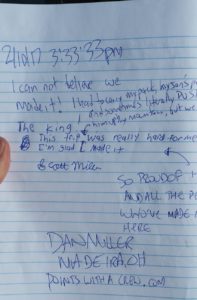 3:33:33pm
I can not believe we
made it! I had to carry my pack, my son's
and sometimes literally PUSH
him up the mountain, but we
The king
This trip was really hard for me
I'm glad I made it
Scott Miller
SO PROUD OF
AND ALL THE PE
WHO'VE MADE
HERE
DAN MILLER
MADEIRA, OH
POINTSWITHACREW.COM